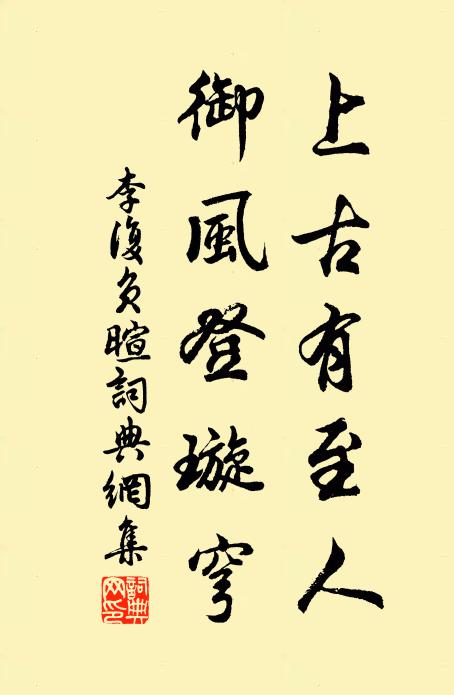 上古有至人
御風登璇穹
李復負暄詞典網集
詞典網印